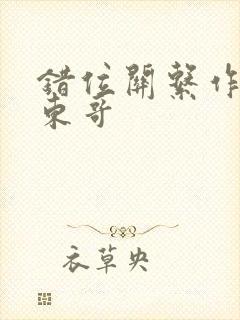 錯位關系作
東哥
衣草央